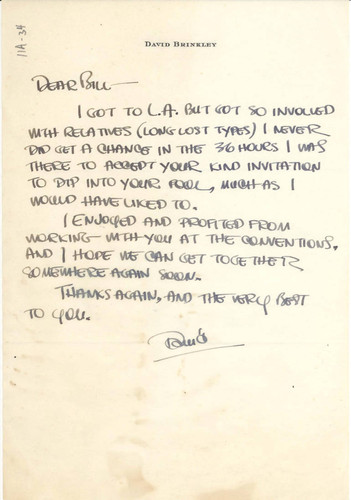 11A-34
DAVID BRINKLEY
DEAR BILL—
I GOT TO L.A. BUT GOT SO INVOLVED
WITH RELATIVES (LONG LOST TYPES) I NEVER
DID GET A CHANCE IN THE 36 HOURS I WAS
THERE TO ACCEPT YOUR KIND INVITATION
TO DIP INTO YOUR POOL, MUCH AS I
WOULD HAVE LIKED TO.
I ENJOYED AND PROFITED FROM
WORKING WITH YOU AT THE CONVENTIONS.
AND I HOPE WE CAN GET TOGETHER
SOMEWHERE AGAIN SOON.
THANKS AGAIN, AND THE VERY BEST
TO YOU.
David